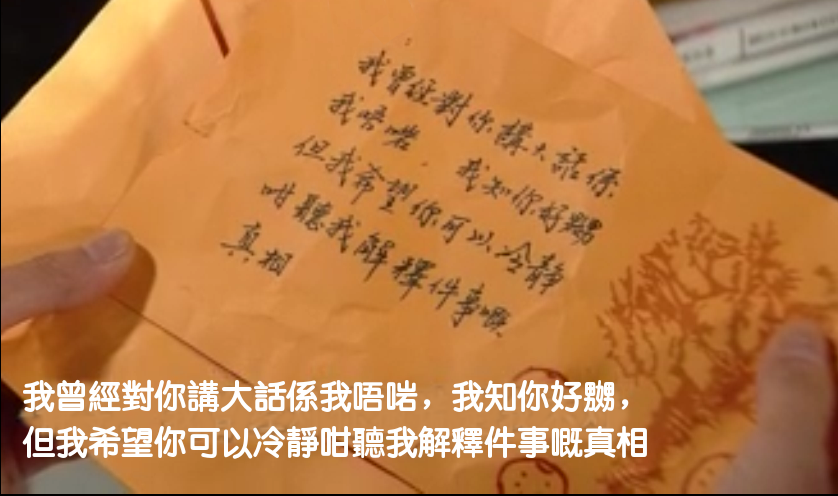 我曾經對你講大話係
我唔啱．我知你好嬲
但我希望你可以冷靜
咁聽我解釋件事嘅
真相
我曾經對你講大話係我唔啱，我知你好嬲，
但我希望你可以冷靜咁聽我解釋件事嘅真相